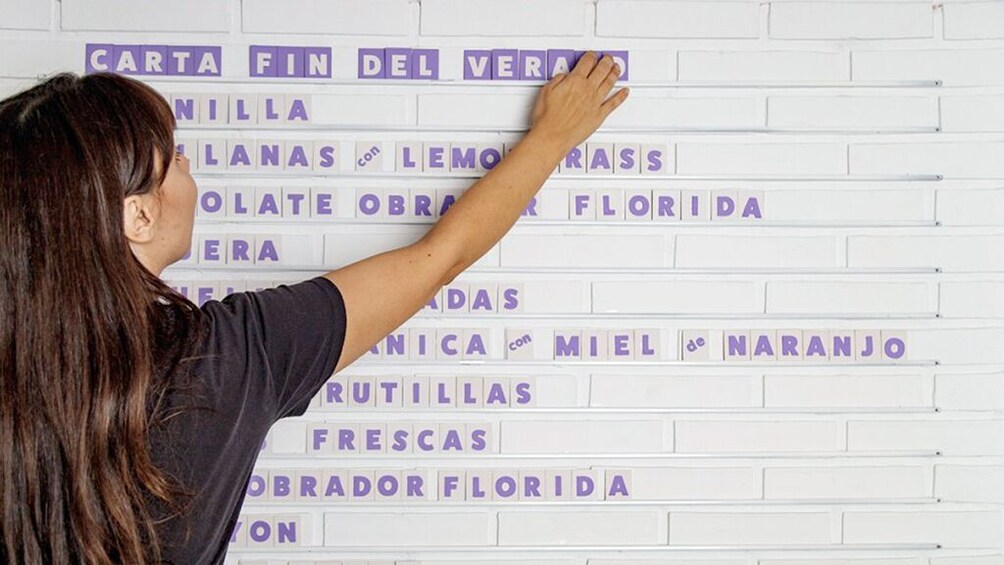 CARTA FIN DEL VERANO
NILLA
LLANAS con LEMONGRASS
OLATE OBRADOR FLORIDA
UERA
ADAS
ANICA con MIEL de NARANJO
RUTILLAS
FRESCAS
OBRADOR FLORIDA
YON